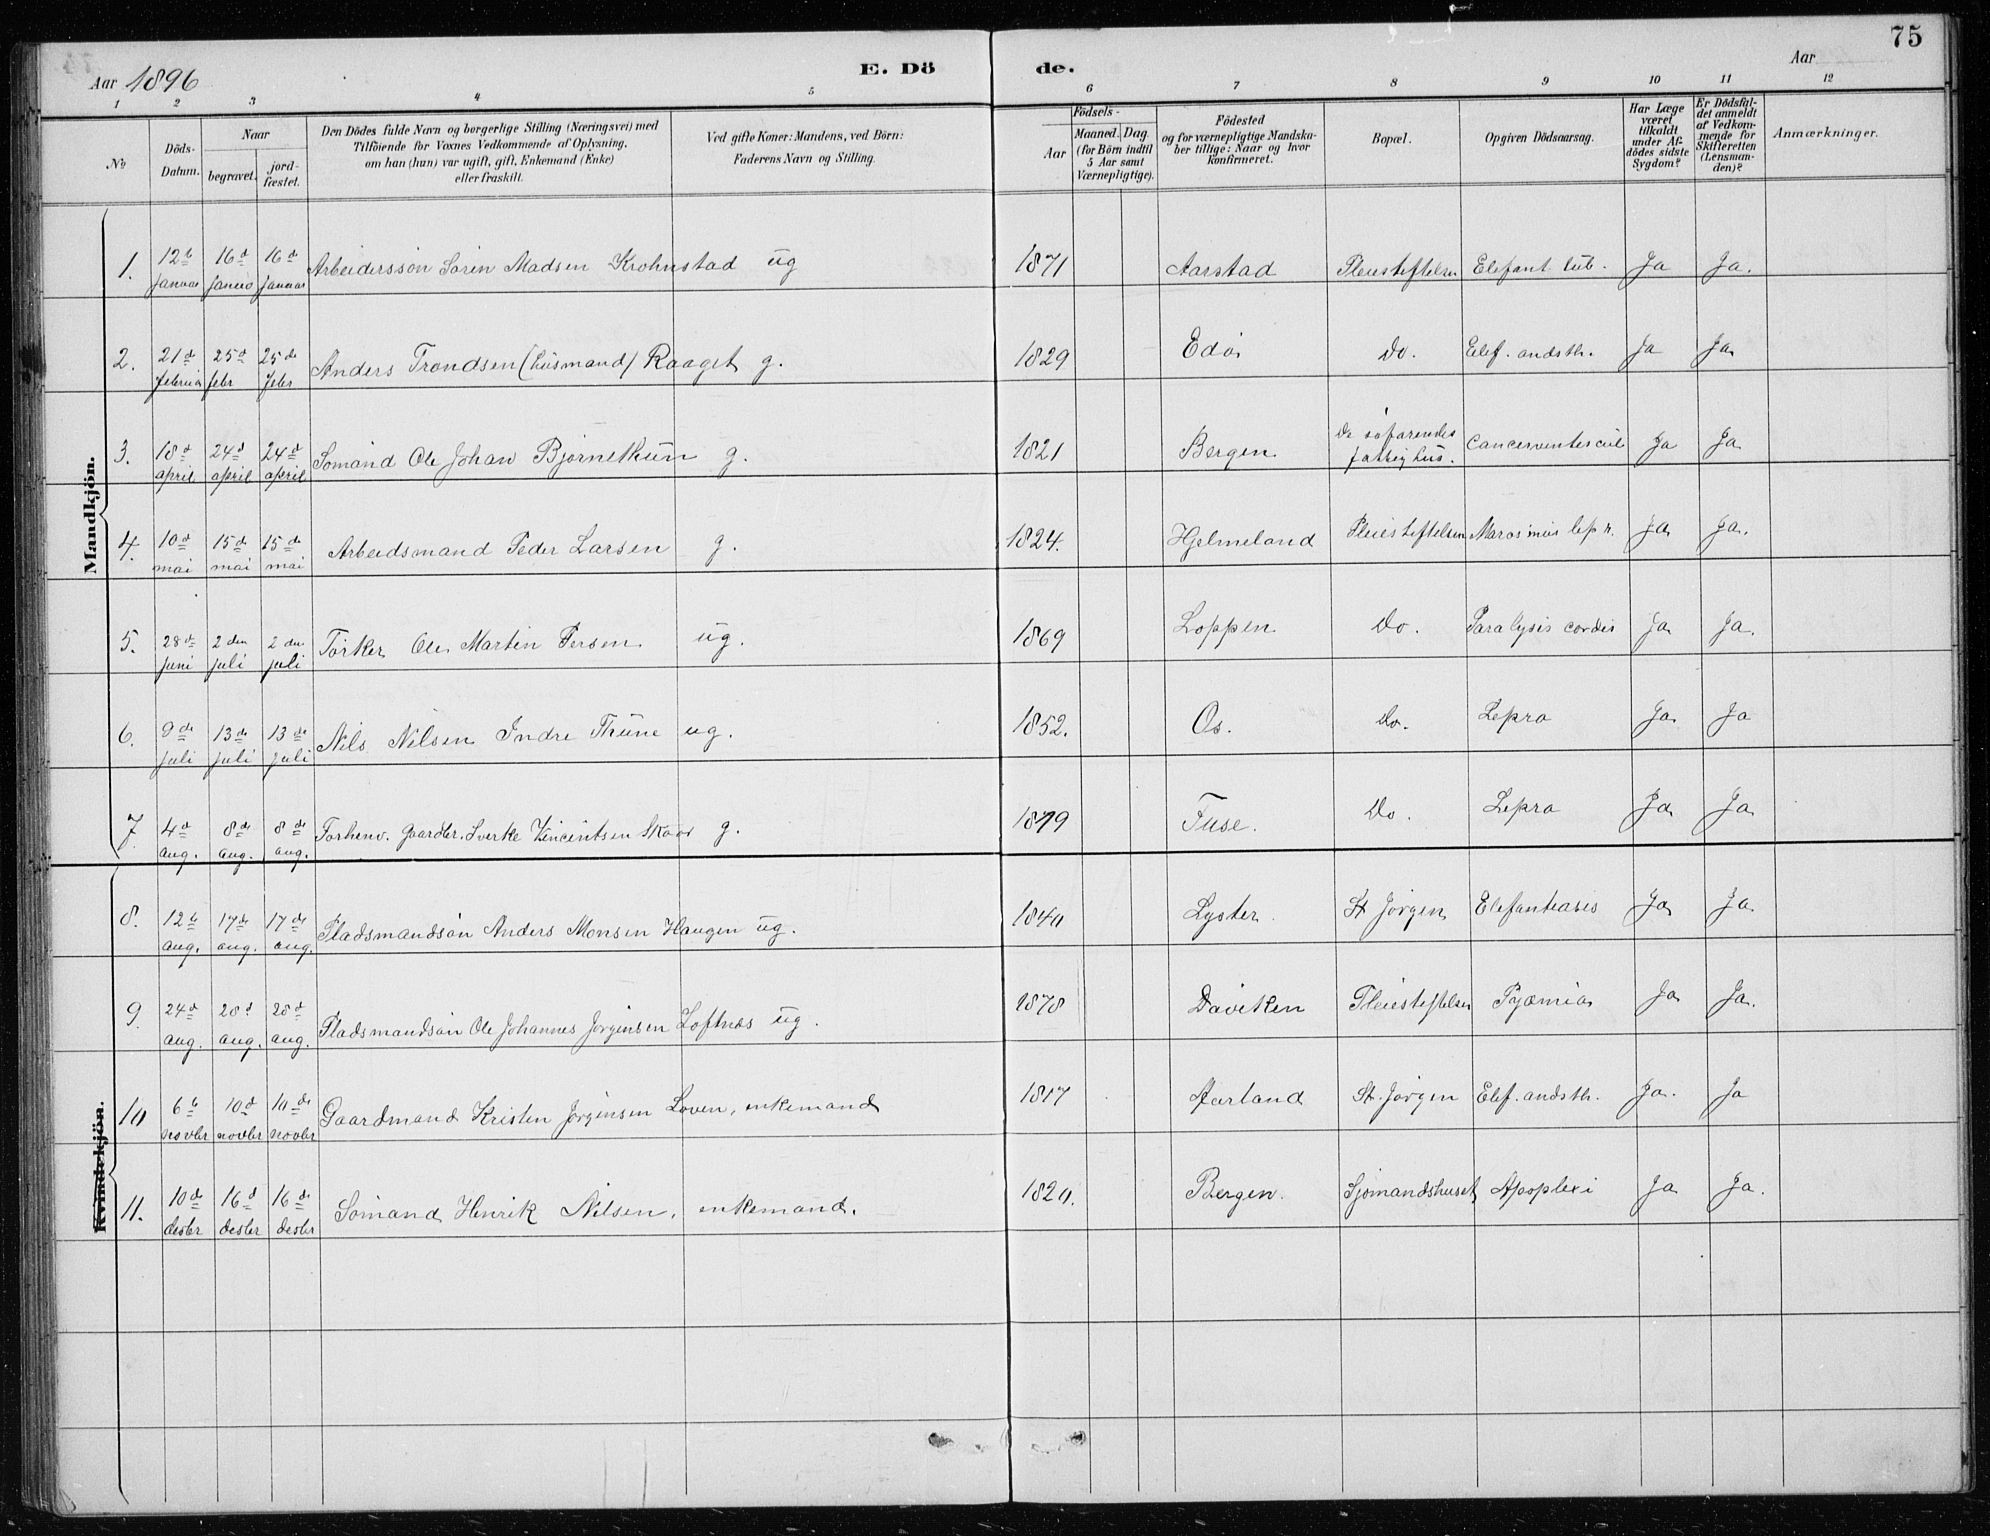 75
Aar 1896
E. Dö
de.
Aar
1 2 3 4 5 6 7 8 9 10 11 12
No
Döds-Datum.
Naar
begravet.
jord-fæstet.
Den Dödes fulde Navn og borgerlige Stilling (Næringsvei) med
Tilföiende for Voxnes Vedkommende af Oplysning,
om han (hun) var ugift, gift, Enkemand (Enke)
eller fraskilt.
Ved gifte Koner: Mandens, ved Börn:
Faderens Navn og Stilling.
Födsels-
Aar
Maaned. Dag.
(for Börn indtil
5 Aar samt
Værnepligtige).
Födested
og for værnepligtige Mandska-
ber tillige: Naar og hvor
konfirmeret.
Bopæl.
Opgiven Dödsaarsag.
Har Læge
været
tilkaldt
under Af-
dödes sidste
Sygdom?
Er Dödsfal-
det anmeldt
af Vedkom-
mende for
Skifteretten
(Lensman-
den)?
Anmærkninger.
Mandkjön.
1. 12te Januar 16de Januar 16de Januar Arbeiderssön Sörin Madsen Krohnstad ug 1871 Aarstad Pleiestiftelsen Elefant. tub. Ja Ja.
2. 21de februar 25de febr 25de febr Anders Trondsen (husmand) Raaget g. 1829 Edö Do. Elef. andsth. Ja Ja
3. 18de april 24de april 24de april Sömand Ole Johan g. 1821 Bergen De söfarendes fattighus. Cancer ventriculi Ja Ja
4. 10de mai 15de mai 15de mai Arbeidsmand Peder Larsen g. 1824. Hjelmeland Pleiestiftelsen Marasmus lepr. Ja Ja.
5. 28de juni 2den juli 2den juli Ole Martin Persen ug. 1869 Loppen Do. Paralysis cordis Ja Ja.
6. 9de juli 13de juli 13de juli Nils Nilsen Indre Thune ug. 1852. Os. Do. Lepra Ja Ja
7. 4de aug. 8de aug. 8de aug. Forhenv. gaardbr. Sverke Vincentsen Skaar g. Fuse. Do. Lepra Ja Ja
8. 12te aug. 17de aug. 17de aug. Pladsmandsön Anders Monsen Haugen ug. 1840 Lyster St Jörgen Elefantiasis Ja Ja
9. 24de aug. 28de aug. 28de aug. Pladsmandsön Ole Johannes Jörgensen Loftnæs ug. 1878 Daviken Pleiestiftelsen Pyæmia Ja Ja.
Kvindekjön.
10 6te novbr 10de novbr 10de novbr Gaardmand Kristen Jörgensen Loven, enkemand 1817 Aurland St. Jörgen Elef. andsth. Ja. Ja
11. 10de desbr 16de desbr 16de desbr Sömand Henrik Nilsen, enkemand. 1820. Bergen. Sjömandshuset Apoplexi Ja Ja.